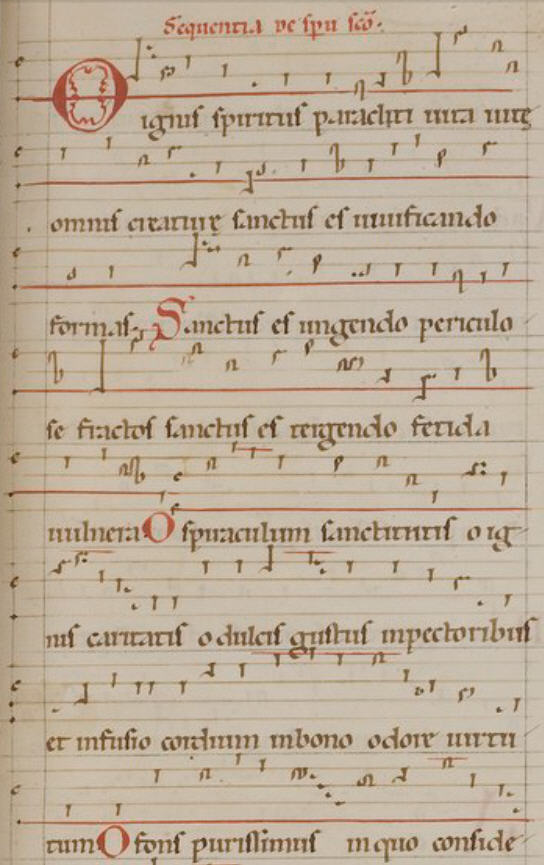 Sequentia de spu sco.
O ignis spiritus paracliti uita uite
omnis creature sanctus es uiuificando
formas. Sanctus es ungendo periculo
se fractos sanctus es tergendo fetida
uulnera. O spiraculum sanctitatis o ig
nis caritatis o dulcis gustus in pectoribus
et infusio cordium in bono odore uirtu
tum O fons purissimus in quo conside